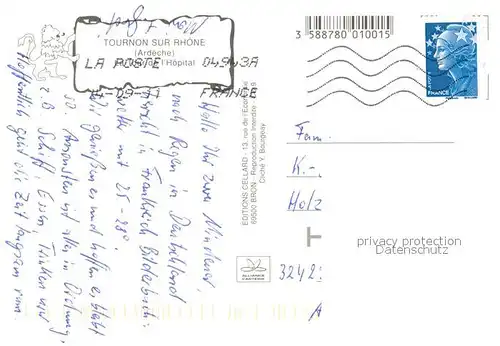 TOURNON SUR RHÔNE
(Ardèche)
l'Hôpital
LA POSTE 04543A
14-09-11 FRANCE
3 588780 010015
FRANCE
Hallo Ihr zwei Münsteraner,
nach Regen in Deutschland
herrscht in Frankreich Bilderbuch-
wetter mit 25-28°
Wir genießen es und hoffen es bleibt
so. Ansonsten ist alles in Ordnung,
z.B. Schiff, Essen, Trinken usw
Hoffentlich geht die Zeit langsam rum.
EDITIONS CELLARD - 13, rue de l'Economie
69500 BRON - Reproduction interdite
Cliché Y. Bourgnay
ALLIANCE
CARTERIE
Fam.
K.-
Holz
3242
privacy protection
Datenschutz